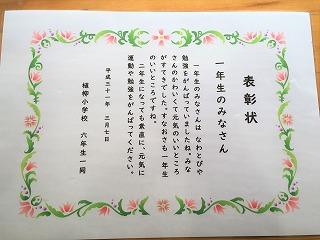 表彰状
一年生のみなさん
一年生のみなさんは なわとびや
勉強をがんばっていましたね。みな
さんのかわいくて元気のいいところ
がすてきでした。すなおさも一年生
のいいところですね。
二年生になっても素直に、元気に
運動や勉強をがんばってください。
平成三十一年 三月七日
植柳小学校 六年生一同